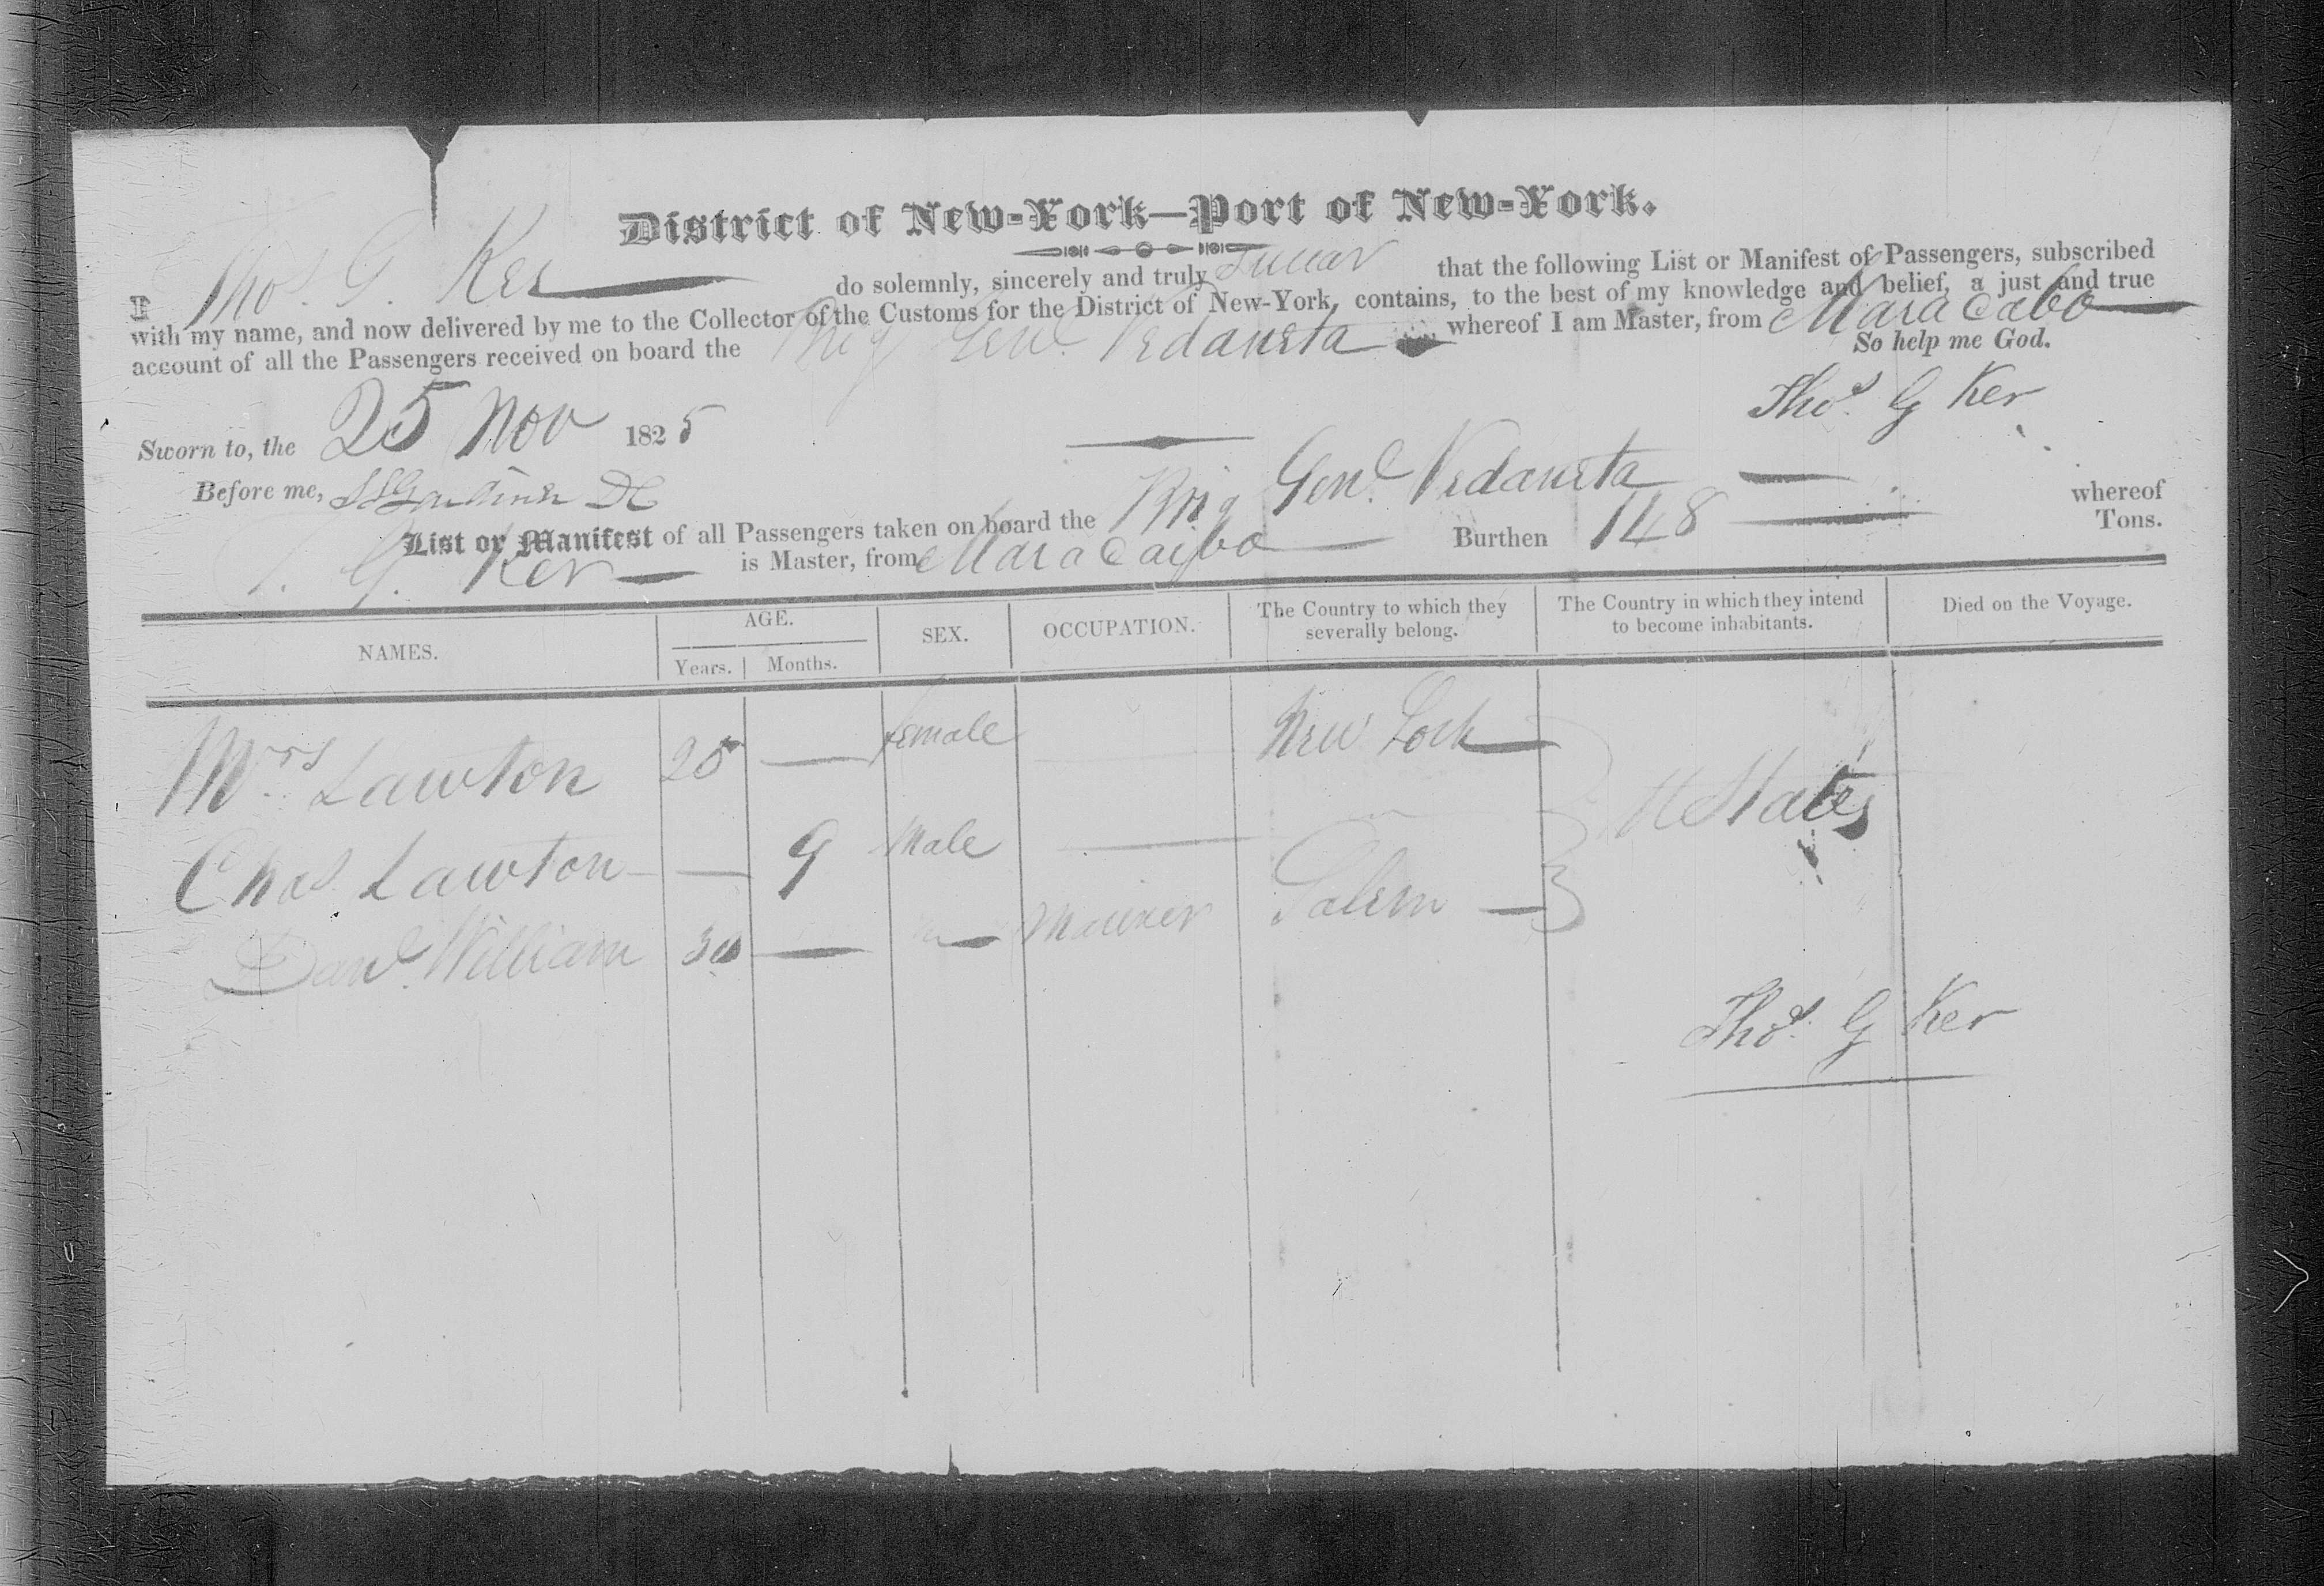 District of New-York—Port of New-York.
I Thos. G. Ker do solemnly, sincerely and truly Swear that the following List or Manifest of Passengers, subscribed
with my name, and now delivered by me to the Collector of the Customs for the District of New-York, contains, to the best of my knowledge and belief, a just and true
account of all the Passengers received on board the Brig Genl. Vrdaneta whereof I am Master, from Maracabo
So help me God.
Thos. G Ker
Sworn to, the 25 Nov 1825
Before me, DC
List or Manifest of all Passengers taken on board the Brig Genl. Vrdaneta whereof
T. G. Ker is Master, from Maracaibo Burthen 148 Tons.
NAMES. AGE. Years. Months. SEX. OCCUPATION. The Country to which they severally belong. The Country in which they intend to become inhabitants. Died on the Voyage.
Mrs. Lawton 25 — female New York
U States
Chas. Lawton — 9 Male —
Danl. William 30 — Mariner Salem —
Thos. G Ker